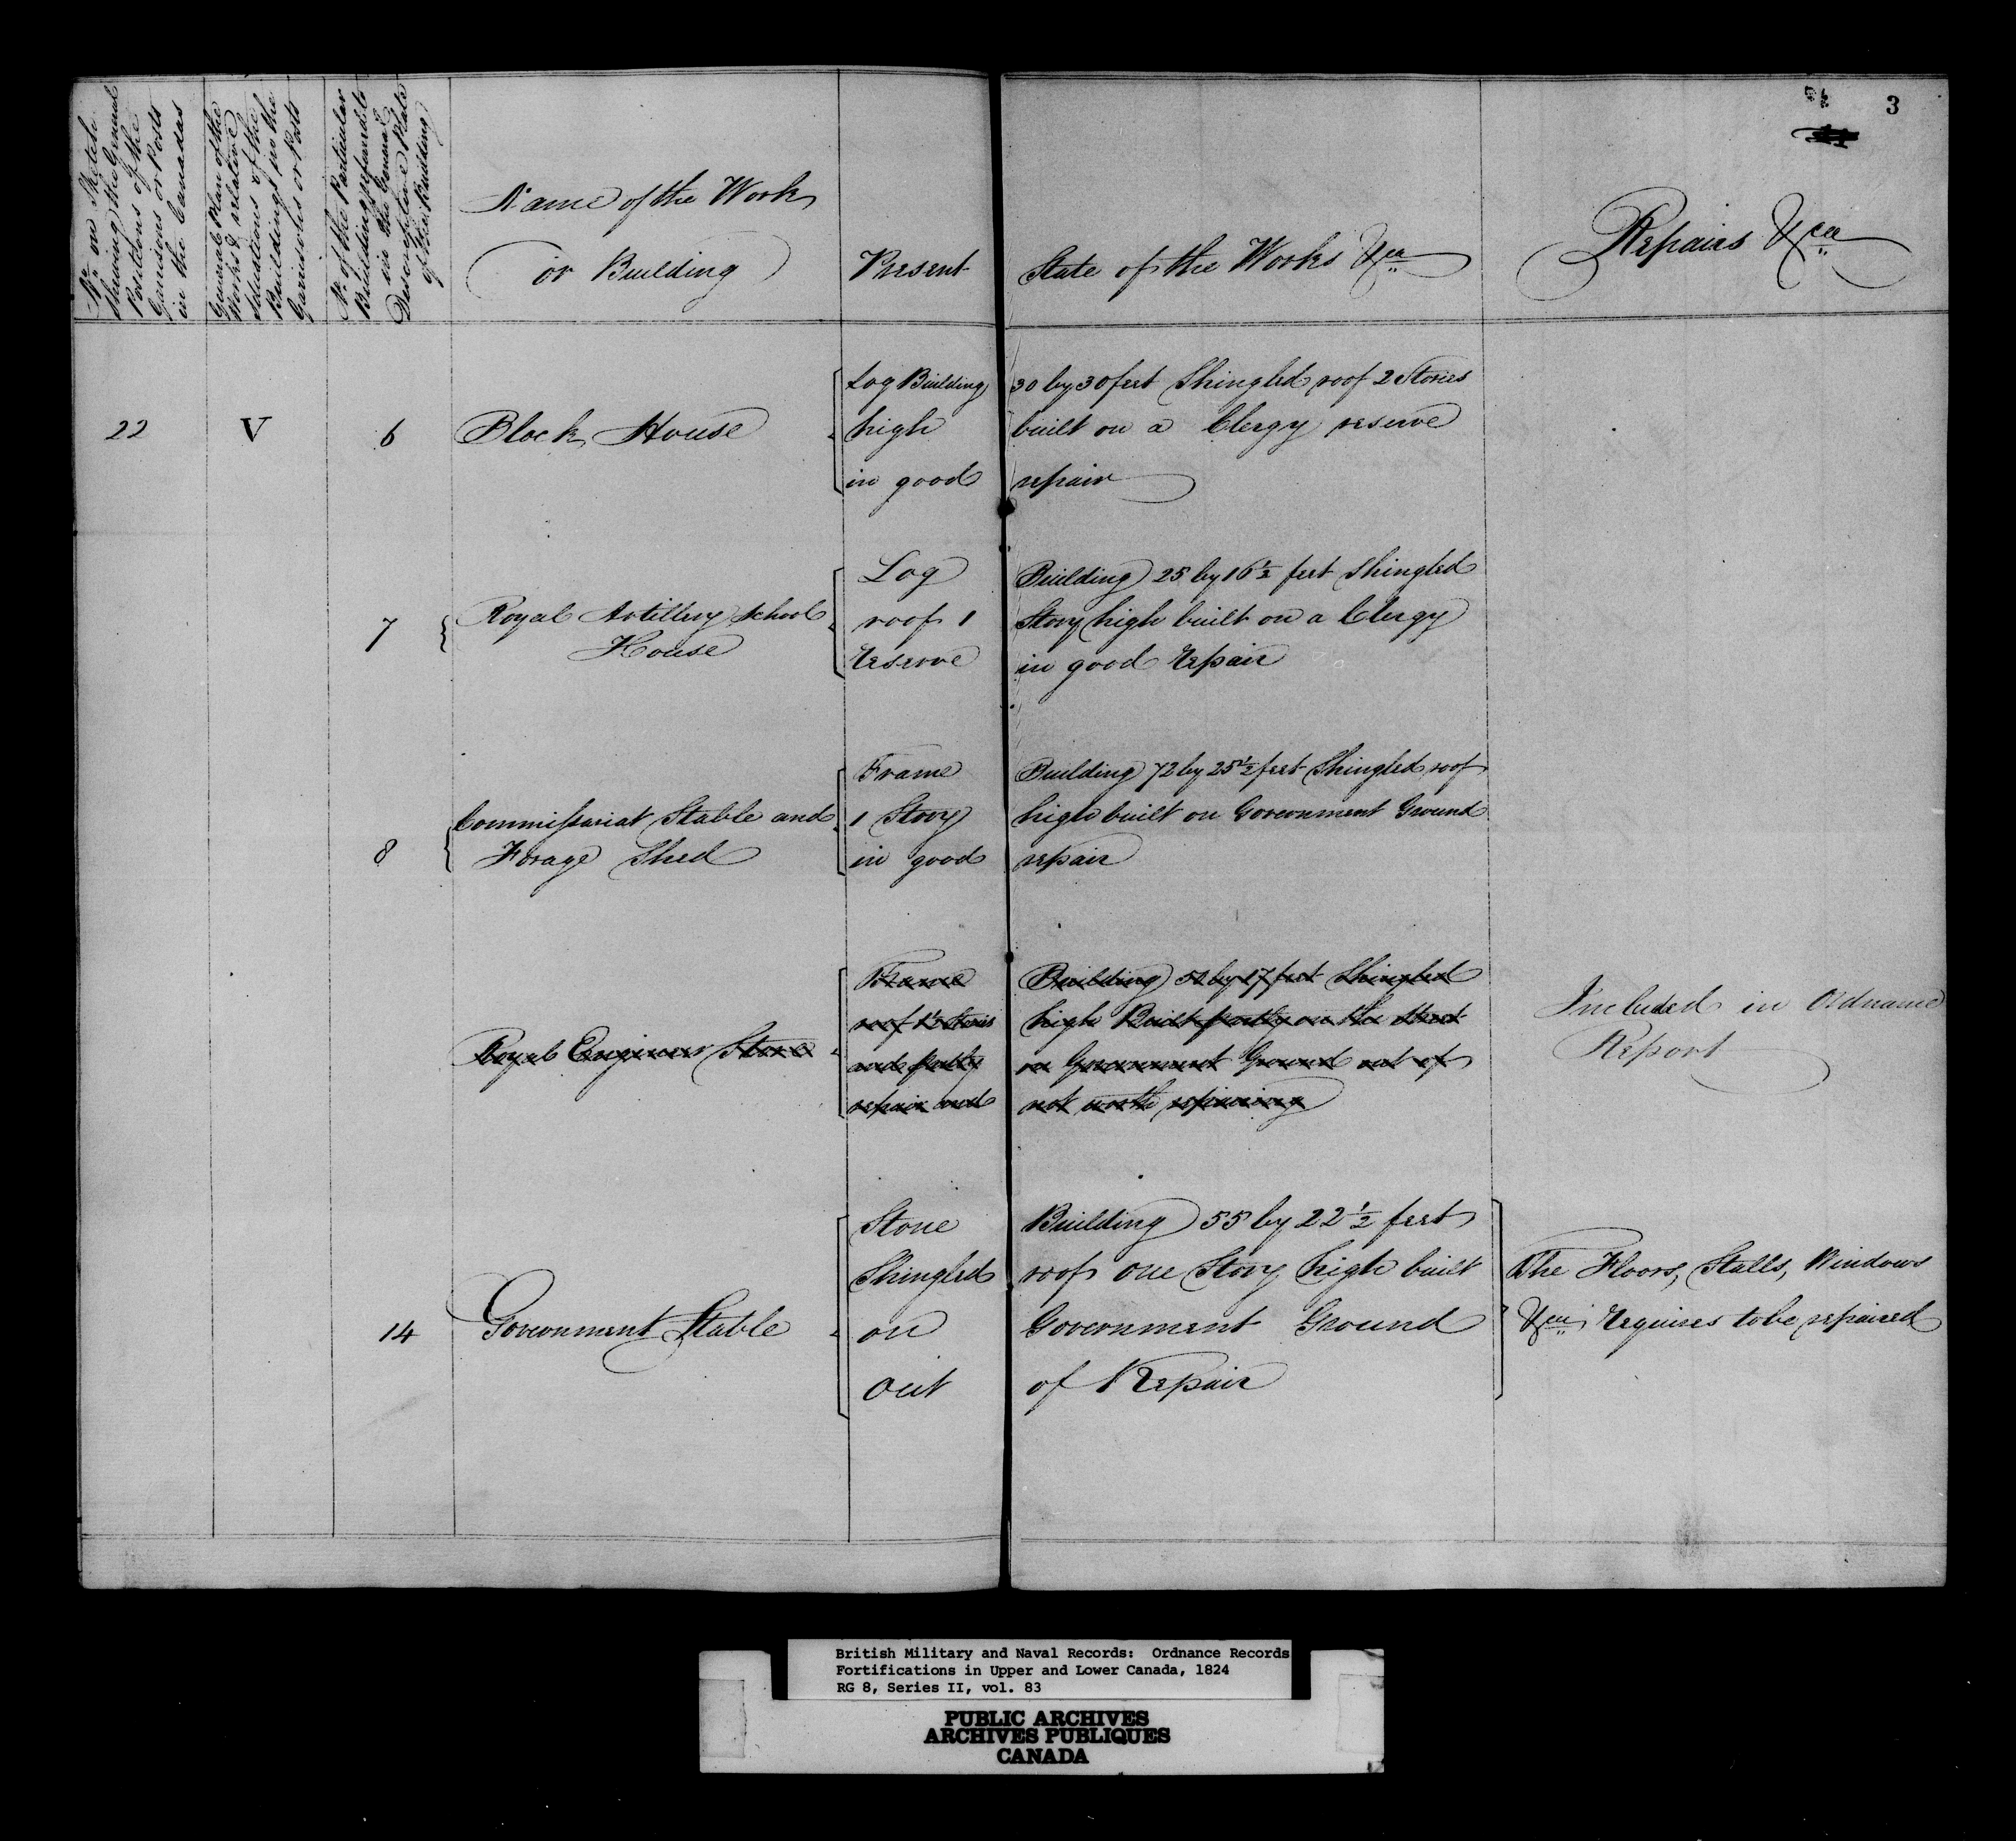 3
No. on Sketch
Shewing the General
Positions of the
Garrisons or Posts
in the Canadas
General Plan of the
Works & relative
Situations of the
Buildings in the
Garrisons or Posts
No. of the Particular
Building referred to
in the General
Descriptive Plate
of the Building
Name of the Work
or Building
Present State of the Works &ca
Repairs &ca
22 V 6 Block House
Log Building 30 by 30 feet Shingled roof 2 Stories
high built on a Clergy reserve
in good repair
7 Royal Artillery School
House
Log Building 25 by 16½ feet Shingled
roof 1 Story high built on a Clergy
Reserve in good Repair
8 Commissariat Stable and
Forage Shed
Frame Building 72 by 25½ feet Shingled roof
1 Story high built on Government Ground
in good repair
Royal Engineer Store
Frame Building 50 by 17 feet Shingled
roof 1½ Stories high Built partly on the Street
and partly on Government Ground out of
repair and not worth repairing
Included in Ordnance
Report
14 Government Stable
Stone Building 55 by 22½ feet
Shingled roof one Story high built
on Government Ground
out of Repair
The Floors, Stalls, Windows
&ca Requires to be repaired
British Military and Naval Records: Ordnance Records
Fortifications in Upper and Lower Canada, 1824
RG 8, Series II, vol. 83
PUBLIC ARCHIVES
ARCHIVES PUBLIQUES
CANADA